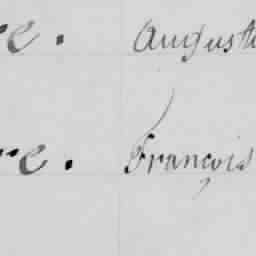 re. August
re. François